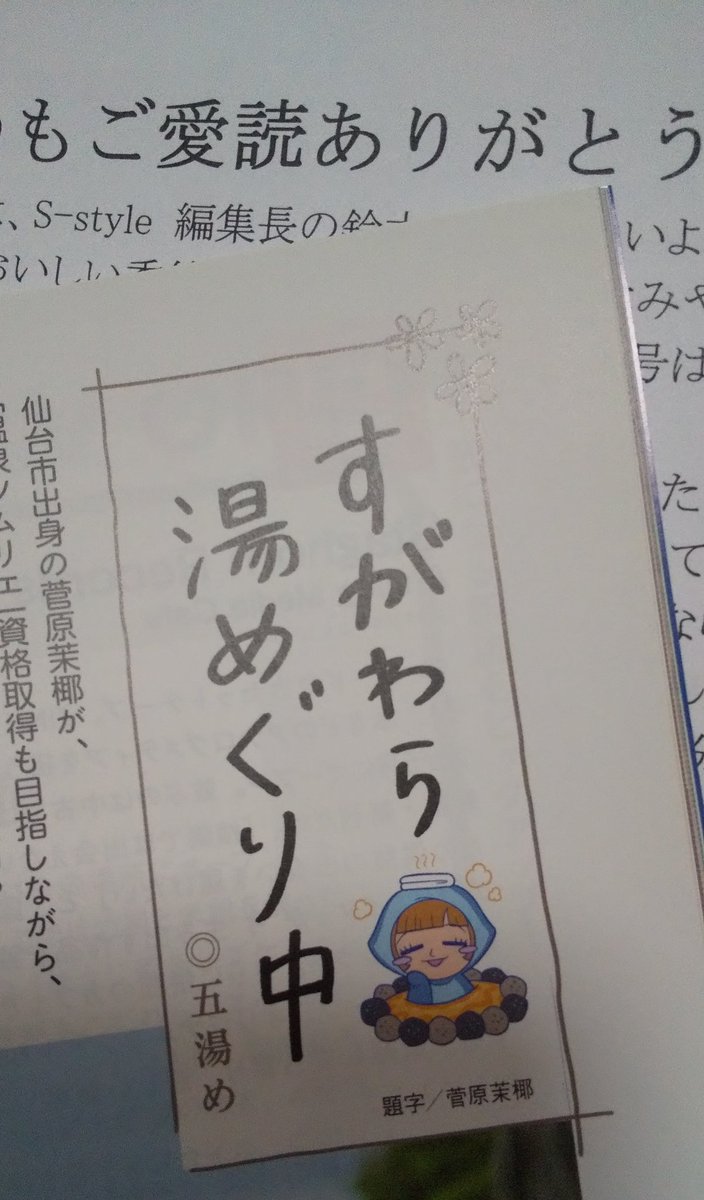 もご愛読ありがとう
S-style 編集長の鈴
おいしい
いよ
みや
号は
た
て
すがわら
湯めぐり中
◎五湯め
題字／菅原茉椰
仙台市出身の菅原茉椰が、
温泉ソムリエ資格取得も目指しながら、